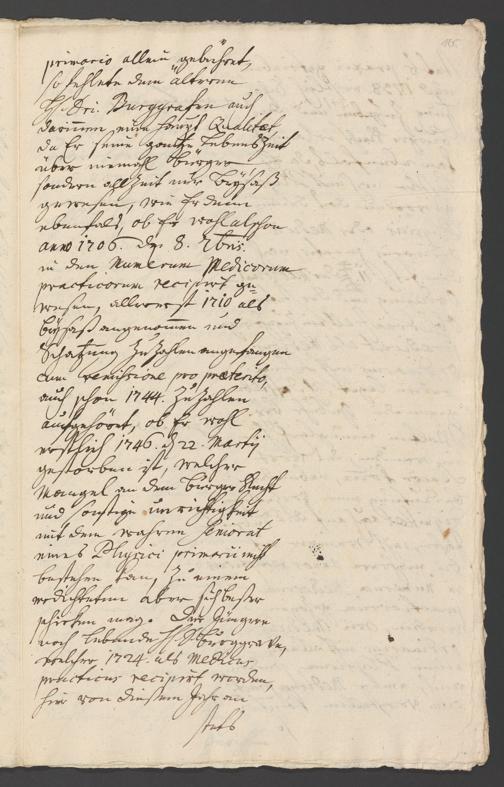 primario allein gebühret,
so fehlete dem älteren
H. Dri. Burggrafen auch
darinnen, eine haupt Qualitæt,
da Er seine gantze Lebens Zeit
über niemahl bürger
sondern allzeit nur Beysaß
gewesen, wie Er dann
ebenfals, ob Er wohl alschon
anno 1706. d. 8. 7bris
in den Numerum Medicorum
practicorum recipirt ge-
wesen, allererst 1710 als
beysaß angenommen und
Schatzung zu zahlen angefangen
cum remissione pro præterito,
auch schon 1744. zu zahlen
aufgehöret, ob Er wohl
erstlich 1746. d. 22. Martij
gestorben ist, welcher
Mangel an dem bürger Recht
und sonstige unrichtigkeit
mit dem wahren Seniorat
eines Physici primarii nicht
bestehen kan, zu einem
aber sich besser
schicken mag. Der Jüngere
noch lebende H. D. Burggrave,
welcher 1724. als Medicus
practicus recipirt worden,
hier von diesem Jahr an
stets